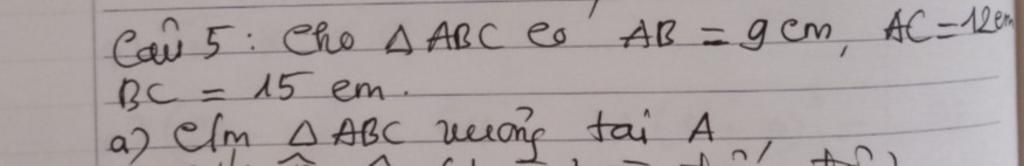 Câu 5: Cho △ ABC có AB = 9 cm, AC = 12 cm
BC = 15 cm.
a) c/m △ ABC vuông tại A